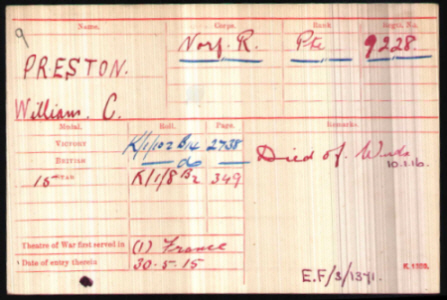 9
Name. Corps. Rank Regtl. No.
PRESTON. Norf. R. Pte 9228.
William. C.
Medal. Roll. Page. Remarks.
VICTORY K/1/102 B14 2738
BRITISH — do —
15 STAR K/1/8 B2 349
Died of Wnds
10.1.16.
Theatre of War first served in (1) France
Date of entry therein 30-5-15
E.F/3/1371.
K. 1380.